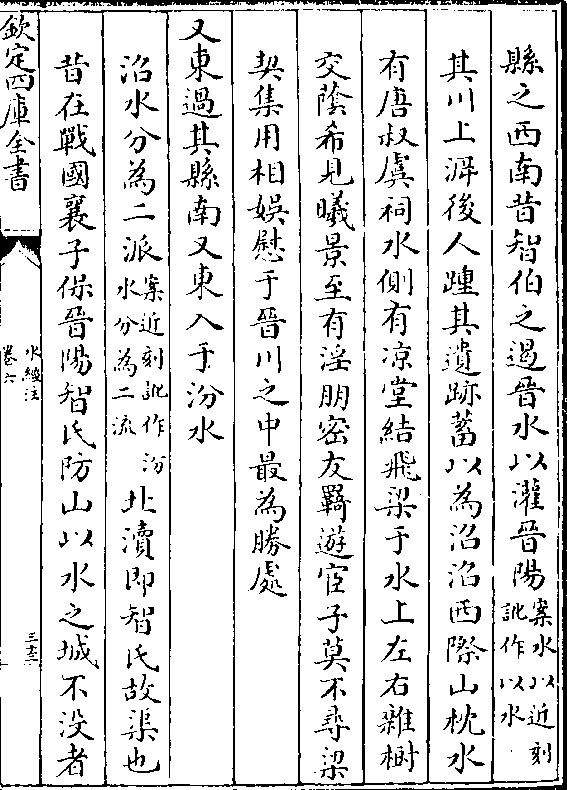 縣之西南昔智伯之遏晉水以灌晉陽案水以近刻訛作以水
其川上溯後人踵其遺跡蓄以為沼沼西際山枕水
有唐叔虞祠水側有凉堂結飛梁于水上左右雜樹
交蔭希見曦景至有淫朋密友羇遊宦子莫不尋梁
契集用相娛慰于晉川之中最為勝處
又東過其縣南又東入于汾水
沼水分為二派案近刻訛作汾水分為二流北瀆即智氏故渠也
昔在戰國襄子保晉陽智氏防山以水之城不没者
欽定四庫全書
水經注
卷六